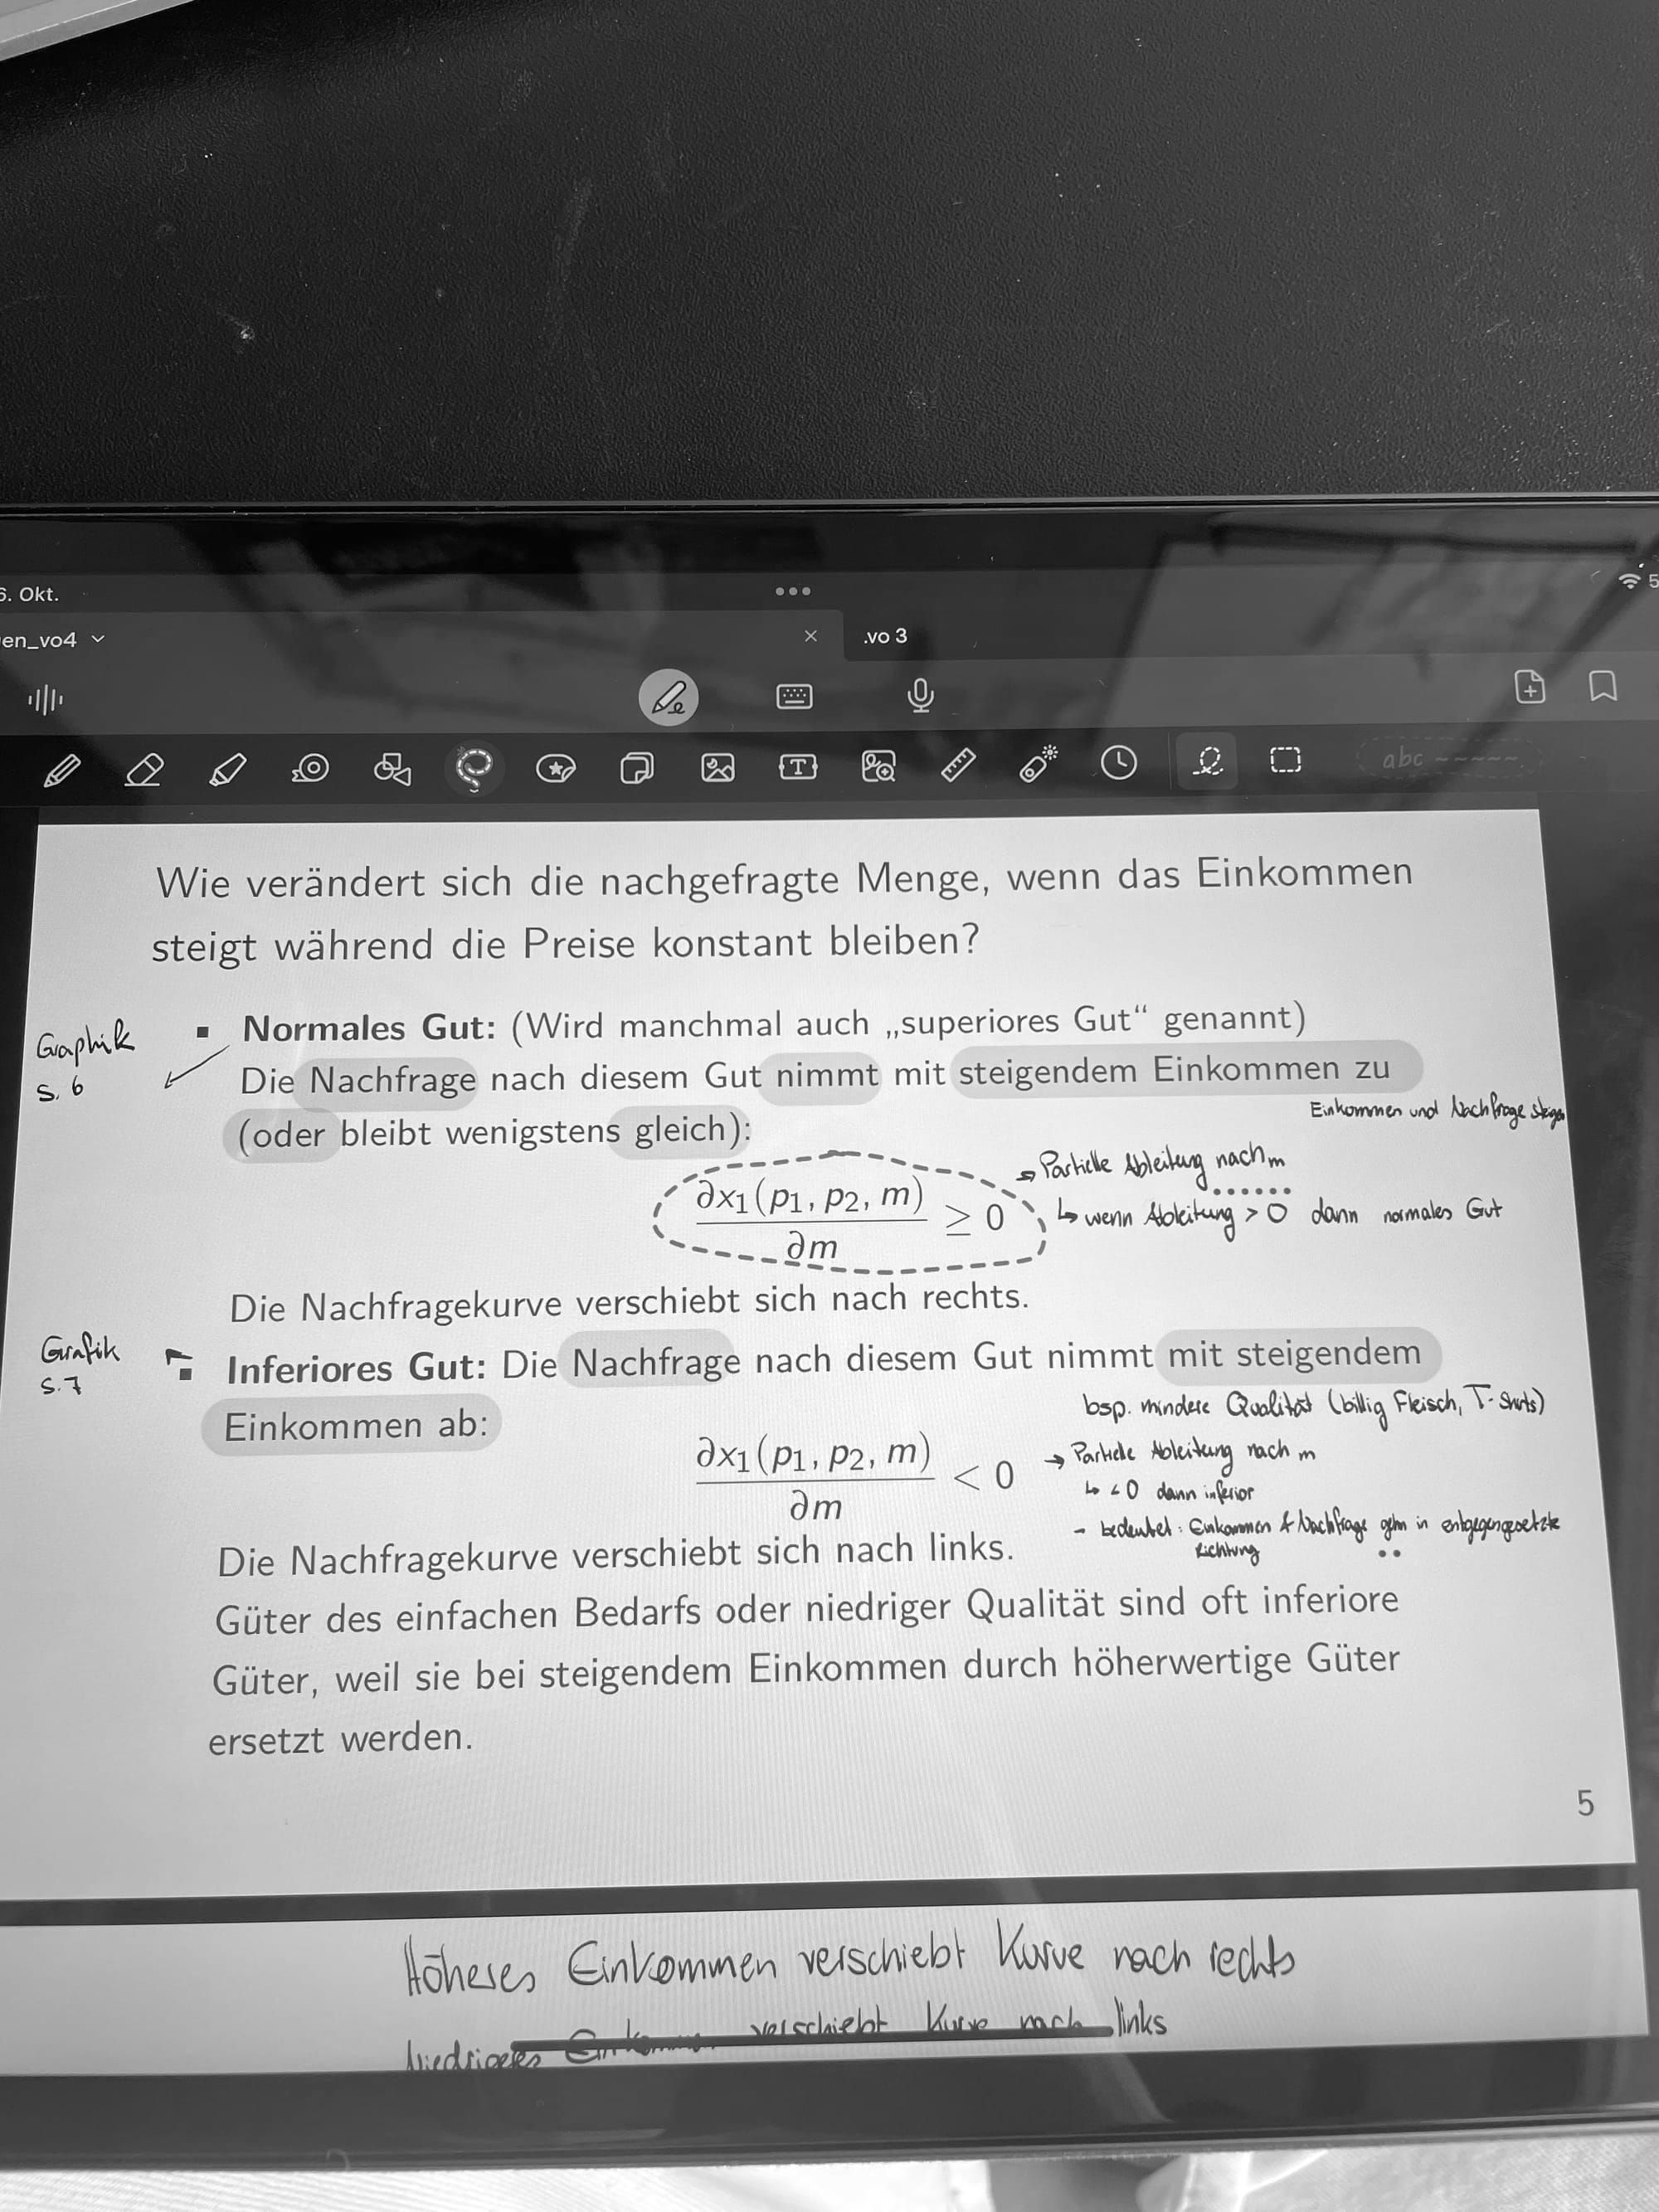 6. Okt.
5
en_vo4
.vo 3
abc
Wie verändert sich die nachgefragte Menge, wenn das Einkommen
steigt während die Preise konstant bleiben?
Graphik
S. 6
▪ Normales Gut: (Wird manchmal auch „superiores Gut“ genannt)
Die Nachfrage nach diesem Gut nimmt mit steigendem Einkommen zu
Einkommen und Nachfrage steigen
(oder bleibt wenigstens gleich):
→ Partielle Ableitung nach m
∂x₁(p₁, p₂, m) / ∂m ≥ 0
↳ wenn Ableitung > 0 dann normales Gut
Die Nachfragekurve verschiebt sich nach rechts.
Grafik
S. 7
▪ Inferiores Gut: Die Nachfrage nach diesem Gut nimmt mit steigendem
Einkommen ab:
bsp. mindere Qualität (billig Fleisch, T-Shirts)
∂x₁(p₁, p₂, m) / ∂m < 0
→ Partielle Ableitung nach m
↳ < 0 dann inferior
- bedeutet: Einkommen & Nachfrage gehn in entgegengesetzte
Richtung
Die Nachfragekurve verschiebt sich nach links.
Güter des einfachen Bedarfs oder niedriger Qualität sind oft inferiore
Güter, weil sie bei steigendem Einkommen durch höherwertige Güter
ersetzt werden.
5
Höheres Einkommen verschiebt Kurve nach rechts
Niedrigeres Einkommen verschiebt Kurve nach links